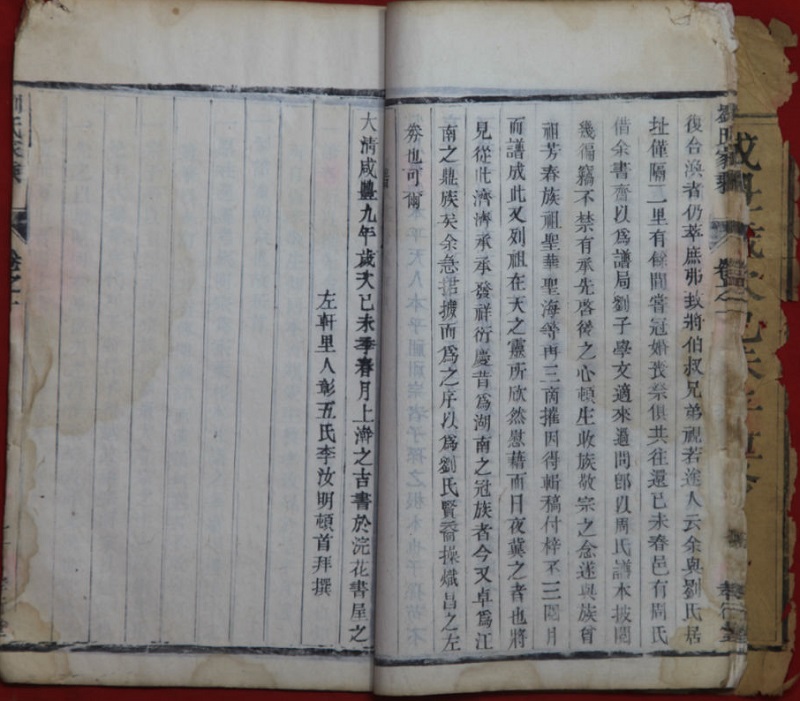 復台渙者仍萃庶弗致將伯叔兄弟視若途人云余與劉氏居
址僅隔二里有餘間嘗冠婚喪祭俱共往還己未春邑有周氏
借余書齋以爲譜局劉子學文適來過問卽以周氏譜本披閱
幾徧竊不禁有承先啓後之心頓生收族敬宗之念遂與族尊
祖芳春族祖聖華聖海等再三商摧因得輯稿付梓不三閱月
而譜成此又列祖在天之靈所欣然慰藉而日夜冀之者也將
見從此濟濟承承發祥衍慶昔爲湖南之冠族者今又卓爲江
南之鼎族矣余急捃摭而爲之序以爲劉氏賢裔操熾昌之左
券也可爾
大清咸豐九年歲次己未季春月上澣之吉書於浣花書屋之
左軒里人彰五氏李汝明頓首拜撰
劉氏家乘
卷之